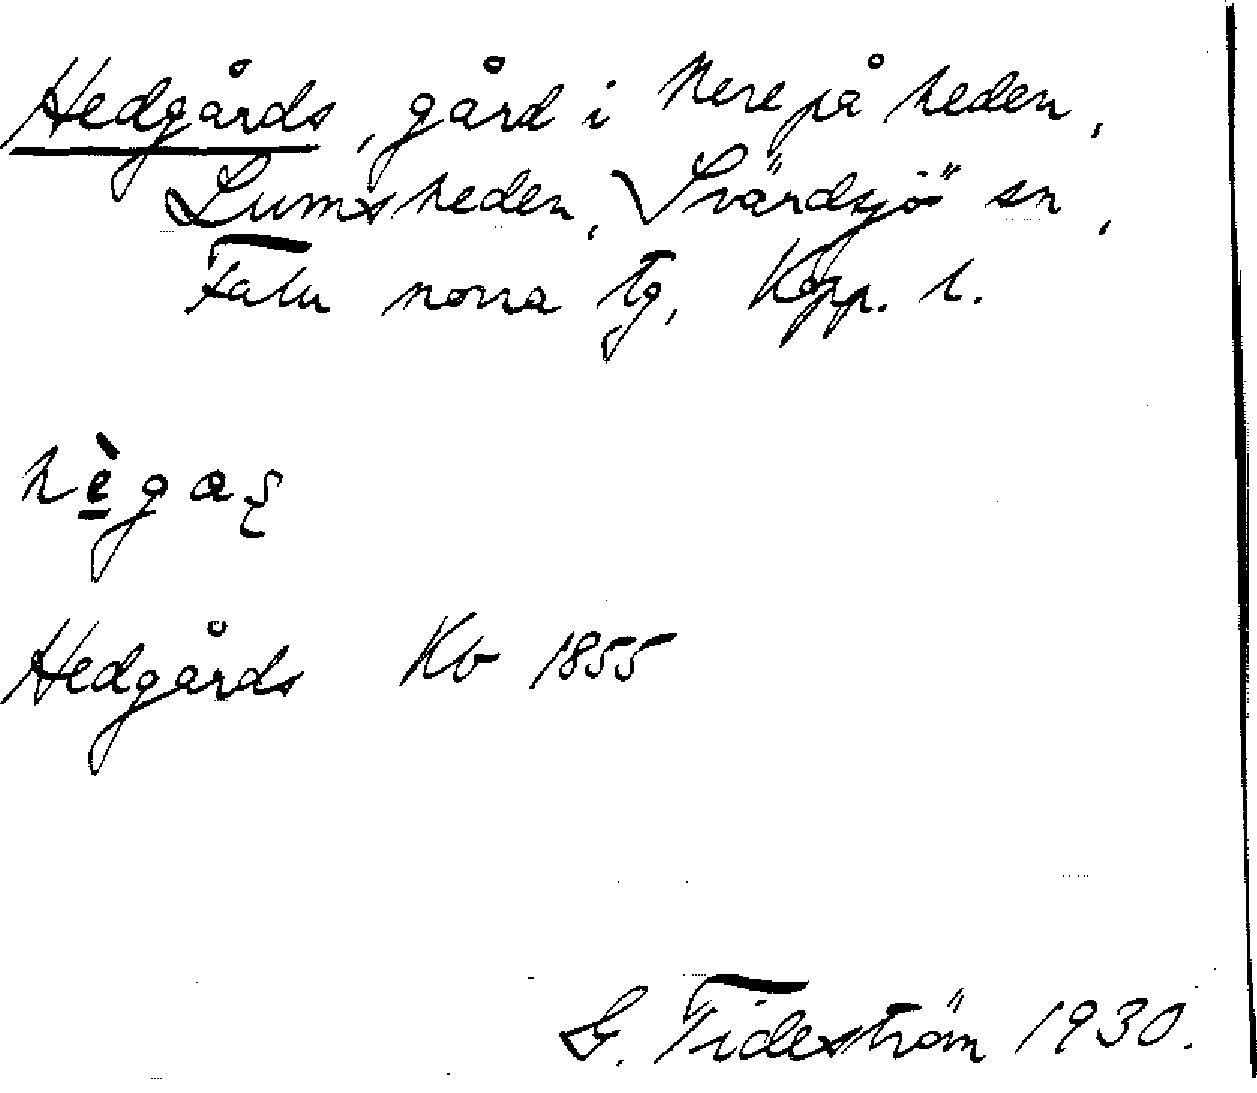 Hedgårds, gård i Nere på heden,
Lumsheden, Svärdsjö sn,
Falu norra tg, Kopp. l.
hègaʂ
Hedgårds Kb 1855
G. Tideström 1930.